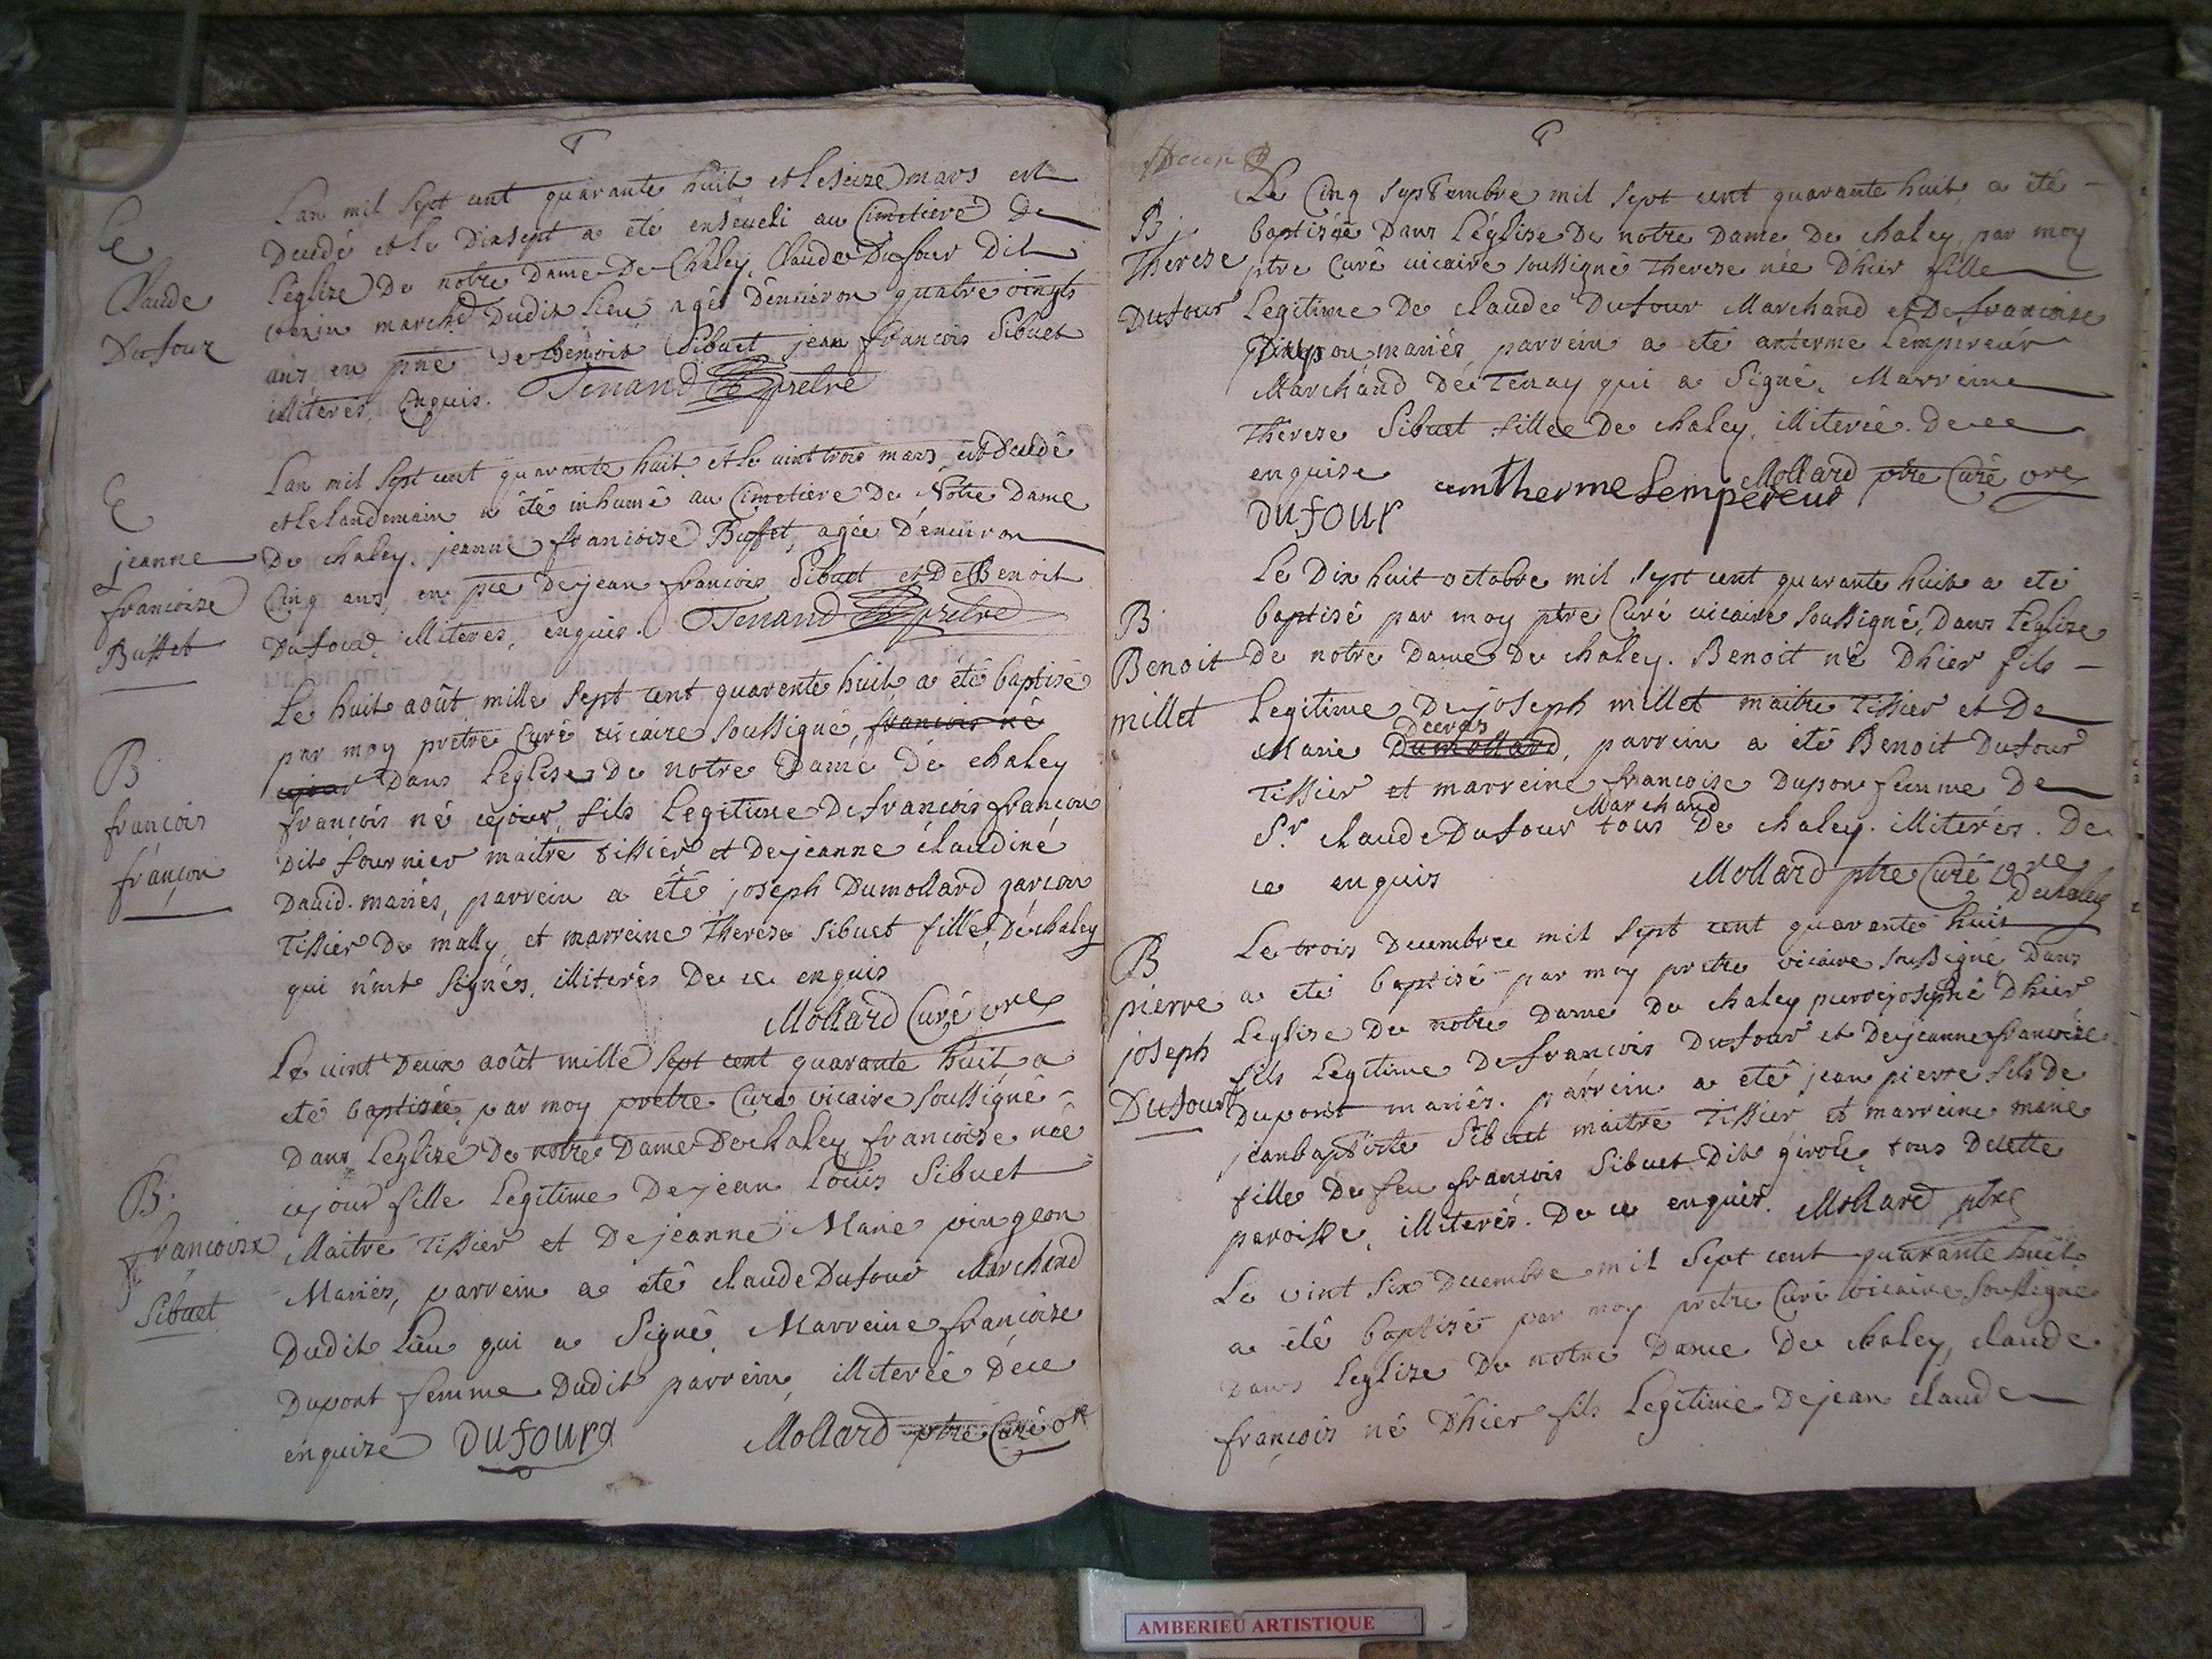 E
Claude
Dufour
Lan mil sept cent quarante huit et le seize mars est
Decedé et le Dixsept a eté enseveli au Cimetiere De
l'églize De notre Dame De Chaley, Claude Dufour Dit
marchd Dudit lieu agé D'environ quatre vingts
ans, en pñe De Benoit Sibuet jean françois Sibuet
illiterés, enquis. Tenand pretre
E
jeanne
francoize
Buffet
Lan mil sept cent quarante huit et le vint trois mars est decedé
et le landemain a été inhumé au Cimetiere De Notre Dame
De chaley. jeanne francoize Buffet, agée D'environ
Cinq ans, en pce De jean francois Sibuet et De Benoit
Dufour, illiteres, enquis. Tenand prêtre
B
françois
françon
Le huit août mille sept cent quarente huit a été baptisé
par moy pretre Curé vicaire soussigné, francois né
cejour Dans leglise De notre Dame Dé chaley
françois né cejour, fils Legitime De françois françon
Dit fournier maitre tissier et De jeanne claudine
David. mariés, parrein a été joseph Dumollard garcon
Tissier De mally, et marreine Therese sibuet fille De chaley
qui n'ont signés, illiterés De ce enquis
Mollard Curé vre
B.
françoise
Sibuet
Le vint Deux août mille sept cent quarante huit a
eté baptisée par moy pretre Curé vicaire soussigné
Dans Leglize De notre Dame De chaley francoise née
cejour fille Legitime De jean Louis Sibuet
Maitre Tissier et De jeanne Marie pingeon
Mariés, parrein a eté claude Dufour Marchand
Dudit Lieu qui a signé, Marreine françoise
Dupont femme Dudit parrein, illiterée De ce
enquize Dufour Mollard ptre Curé vre
B
Therese
Dufour
Le Cinq septembre mil sept cent quarante huit, a été
baptisée Dans L'église De notre Dame De chaley, par moy
ptre Curé vicaire soussigné Therese née D'hier fille
Legitime De claude Dufour Marchand et De francoise
Dupon mariés, parrein a eté anterme Lempereur
Marchand De Tenay qui a signé. Marreine
Therese Sibuet fille De chaley, illiterée. De ce
enquise Mollard ptre Curé vre
antherme Lempereur
DUfOUr
B
Benoit
millet
Le Dix huit octobre mil sept cent quarante huit a eté
baptisé par moy ptre Curé vicaire soussigné, Dans L'eglize
De notre Dame De chaley. Benoit né Dhier fils
Legitime De joseph millet maitre tissier et De
Marie Dumollard, parrein a été Benoit Dufour
Tissier et marreine francoise Dupon femme De
Marchand
Sr. claude Dufour tous De chaley. illiterés. De
ce enquis Mollard ptre Curé vre
De chaley
B
pierre
joseph
Dufour
Le trois Decembre mil sept cent quarante huit
a eté baptisé par moy pretre vicaire soussigné Dans
Leglize De notre Dame De chaley pierre joseph né Dhier
fils Legitime De francois Dufour et De jeanne francoise
Dupont mariés. parrein a eté jean pierre fils De
jean baptiste Sibuet maitre Tissier, et marreine marie
fille De feu françois Sibuet Dit girole, tous De cette
paroisse, illiterés. De ce enquis. Mollard ptre
Le vint six Decembre mil sept cent quarante huit
a été baptisé par moy pretre Curé vicaire soussigné
Dans leglize De notre Dame De chaley, claude
françois né D'hier fils Legitime De jean claude
AMBERIEU ARTISTIQUE